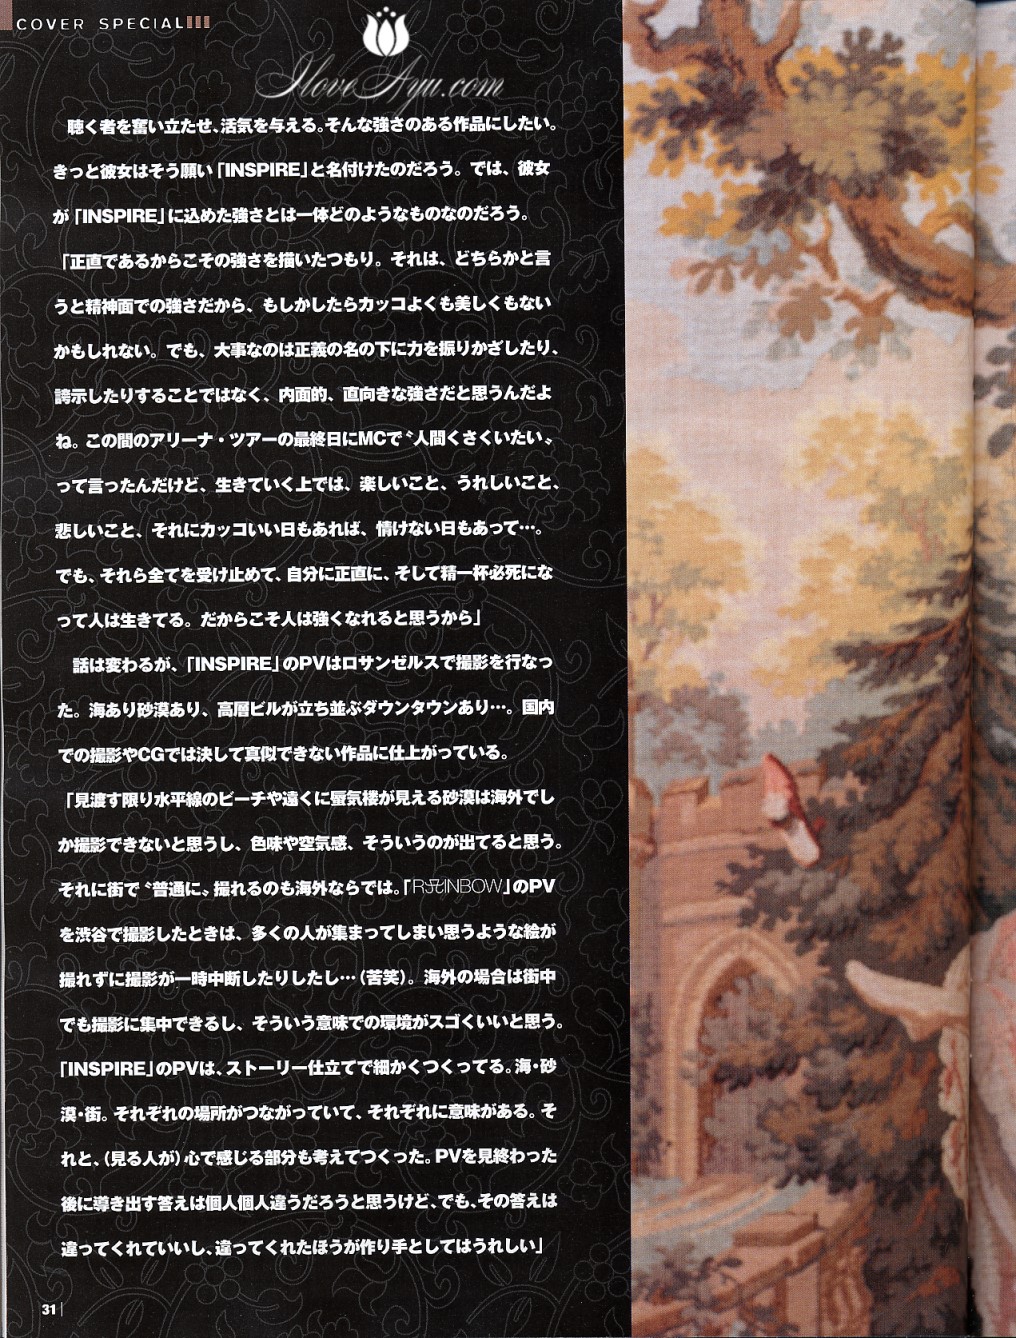 COVER SPECIAL
IloveAyu.com
聴く者を奮い立たせ、活気を与える。そんな強さのある作品にしたい。
きっと彼女はそう願い「INSPIRE」と名付けたのだろう。では、彼女
が「INSPIRE」に込めた強さとは一体どのようなものなのだろう。
「正直であるからこその強さを描いたつもり。それは、どちらかと言
うと精神面での強さだから、もしかしたらカッコよくも美しくもない
かもしれない。でも、大事なのは正義の名の下に力を振りかざしたり、
誇示したりすることではなく、内面的、直向きな強さだと思うんだよ
ね。この間のアリーナ・ツアーの最終日にMCで〝人間くさくいたい〟
って言ったんだけど、生きていく上では、楽しいこと、うれしいこと、
悲しいこと、それにカッコいい日もあれば、情けない日もあって…。
でも、それら全てを受け止めて、自分に正直に、そして精一杯必死にな
って人は生きてる。だからこそ人は強くなれると思うから」
話は変わるが、「INSPIRE」のPVはロサンゼルスで撮影を行なっ
た。海あり砂漠あり、高層ビルが立ち並ぶダウンタウンあり…。国内
での撮影やCGでは決して真似できない作品に仕上がっている。
「見渡す限り水平線のビーチや遠くに蜃気楼が見える砂漠は海外でし
か撮影できないと思うし、色味や空気感、そういうのが出てると思う。
それに街で〝普通に〟撮れるのも海外ならでは。「RAINBOW」のPV
を渋谷で撮影したときは、多くの人が集まってしまい思うような絵が
撮れずに撮影が一時中断したりしたし…（苦笑）。海外の場合は街中
でも撮影に集中できるし、そういう意味での環境がスゴくいいと思う。
「INSPIRE」のPVは、ストーリー仕立てで細かくつくってる。海・砂
漠・街。それぞれの場所がつながっていて、それぞれに意味がある。そ
れと、（見る人が）心で感じる部分も考えてつくった。PVを見終わった
後に導き出す答えは個人個人違うだろうと思うけど、でも、その答えは
違ってくれていいし、違ってくれたほうが作り手としてはうれしい」
31